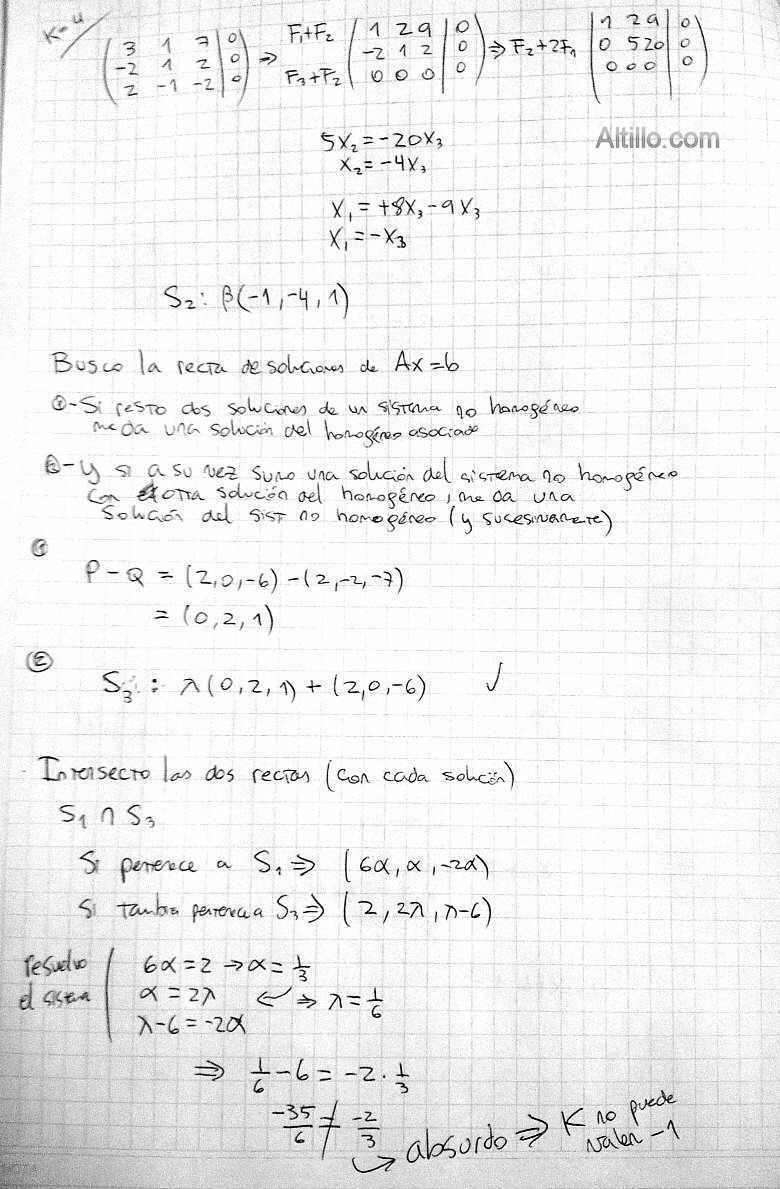 K=4
( 3 1 7 | 0 ; -2 1 2 | 0 ; 2 -1 -2 | 0 ) ⇒ F₁+F₂ F₃+F₂ ( 1 2 9 | 0 ; -2 1 2 | 0 ; 0 0 0 | 0 ) ⇒ F₂+2F₁ ( 1 2 9 | 0 ; 0 5 20 | 0 ; 0 0 0 | 0 )
Altillo.com
5X₂ = -20X₃
X₂ = -4X₃
X₁ = +8X₃ - 9X₃
X₁ = -X₃
S₂: β(-1, -4, 1)
Busco la recta de soluciones de Ax=b
①-Si resto dos soluciones de un sistema no homogéneo
me da una solución del homogéneo asociado
②-Y si a su vez sumo una solución del sistema no homogéneo
con otra solución del homogéneo, me da una
solución del sist no homogéneo (y sucesivamente)
①
P - Q = (2,0,-6) - (2,-2,-7)
= (0,2,1)
②
S₃: λ(0,2,1) + (2,0,-6) √
Intersecto las dos rectas (con cada solución)
S₁ ∩ S₃
Si pertenece a S₁ ⇒ (6α, α, -2α)
Si tambn pertenece a S₃ ⇒ (2, 2λ, λ-6)
resuelvo 6α = 2 → α = 1/3
el sistema α = 2λ ⇒ λ = 1/6
λ-6 = -2α
⇒ 1/6 - 6 = -2 · 1/3
-35/6 ≠ -2/3
absurdo ⇒ K no puede
valer -1